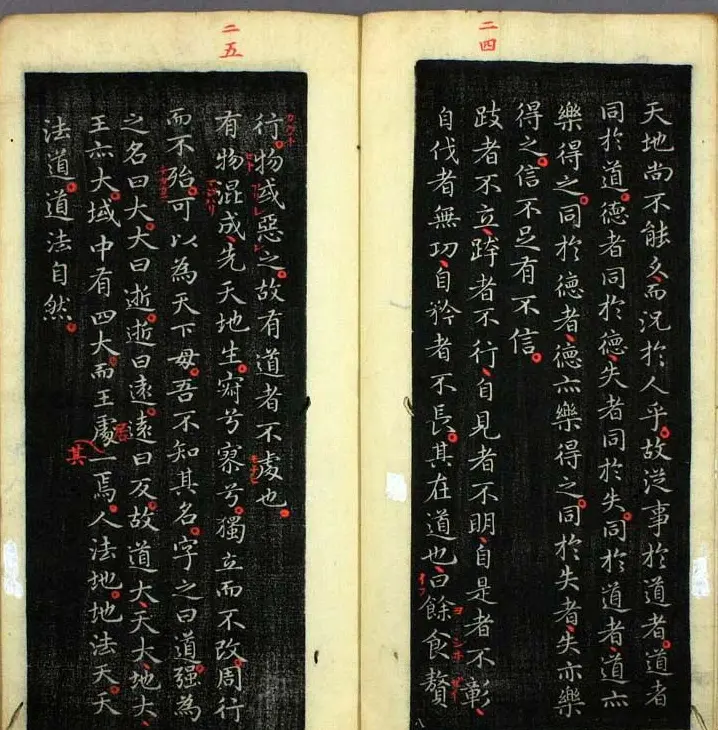 二四
天地尚不能久而況於人乎故從事於道者道者
同於道德者同於德失者同於失同於道者道亦
樂得之同於德者德亦樂得之同於失者失亦樂
得之信不足有不信
跂者不立跨者不行自見者不明自是者不彰
自伐者無功自矜者不長其在道也曰餘食贅
二五
行物或惡之故有道者不處也
有物混成先天地生寂兮寥兮獨立而不改周行
而不殆可以為天下母吾不知其名字之曰道强為
之名曰大大曰逝逝曰遠遠曰反故道大天大地大
王亦大域中有四大而王處一焉人法地地法天天
其
居
法道道法自然